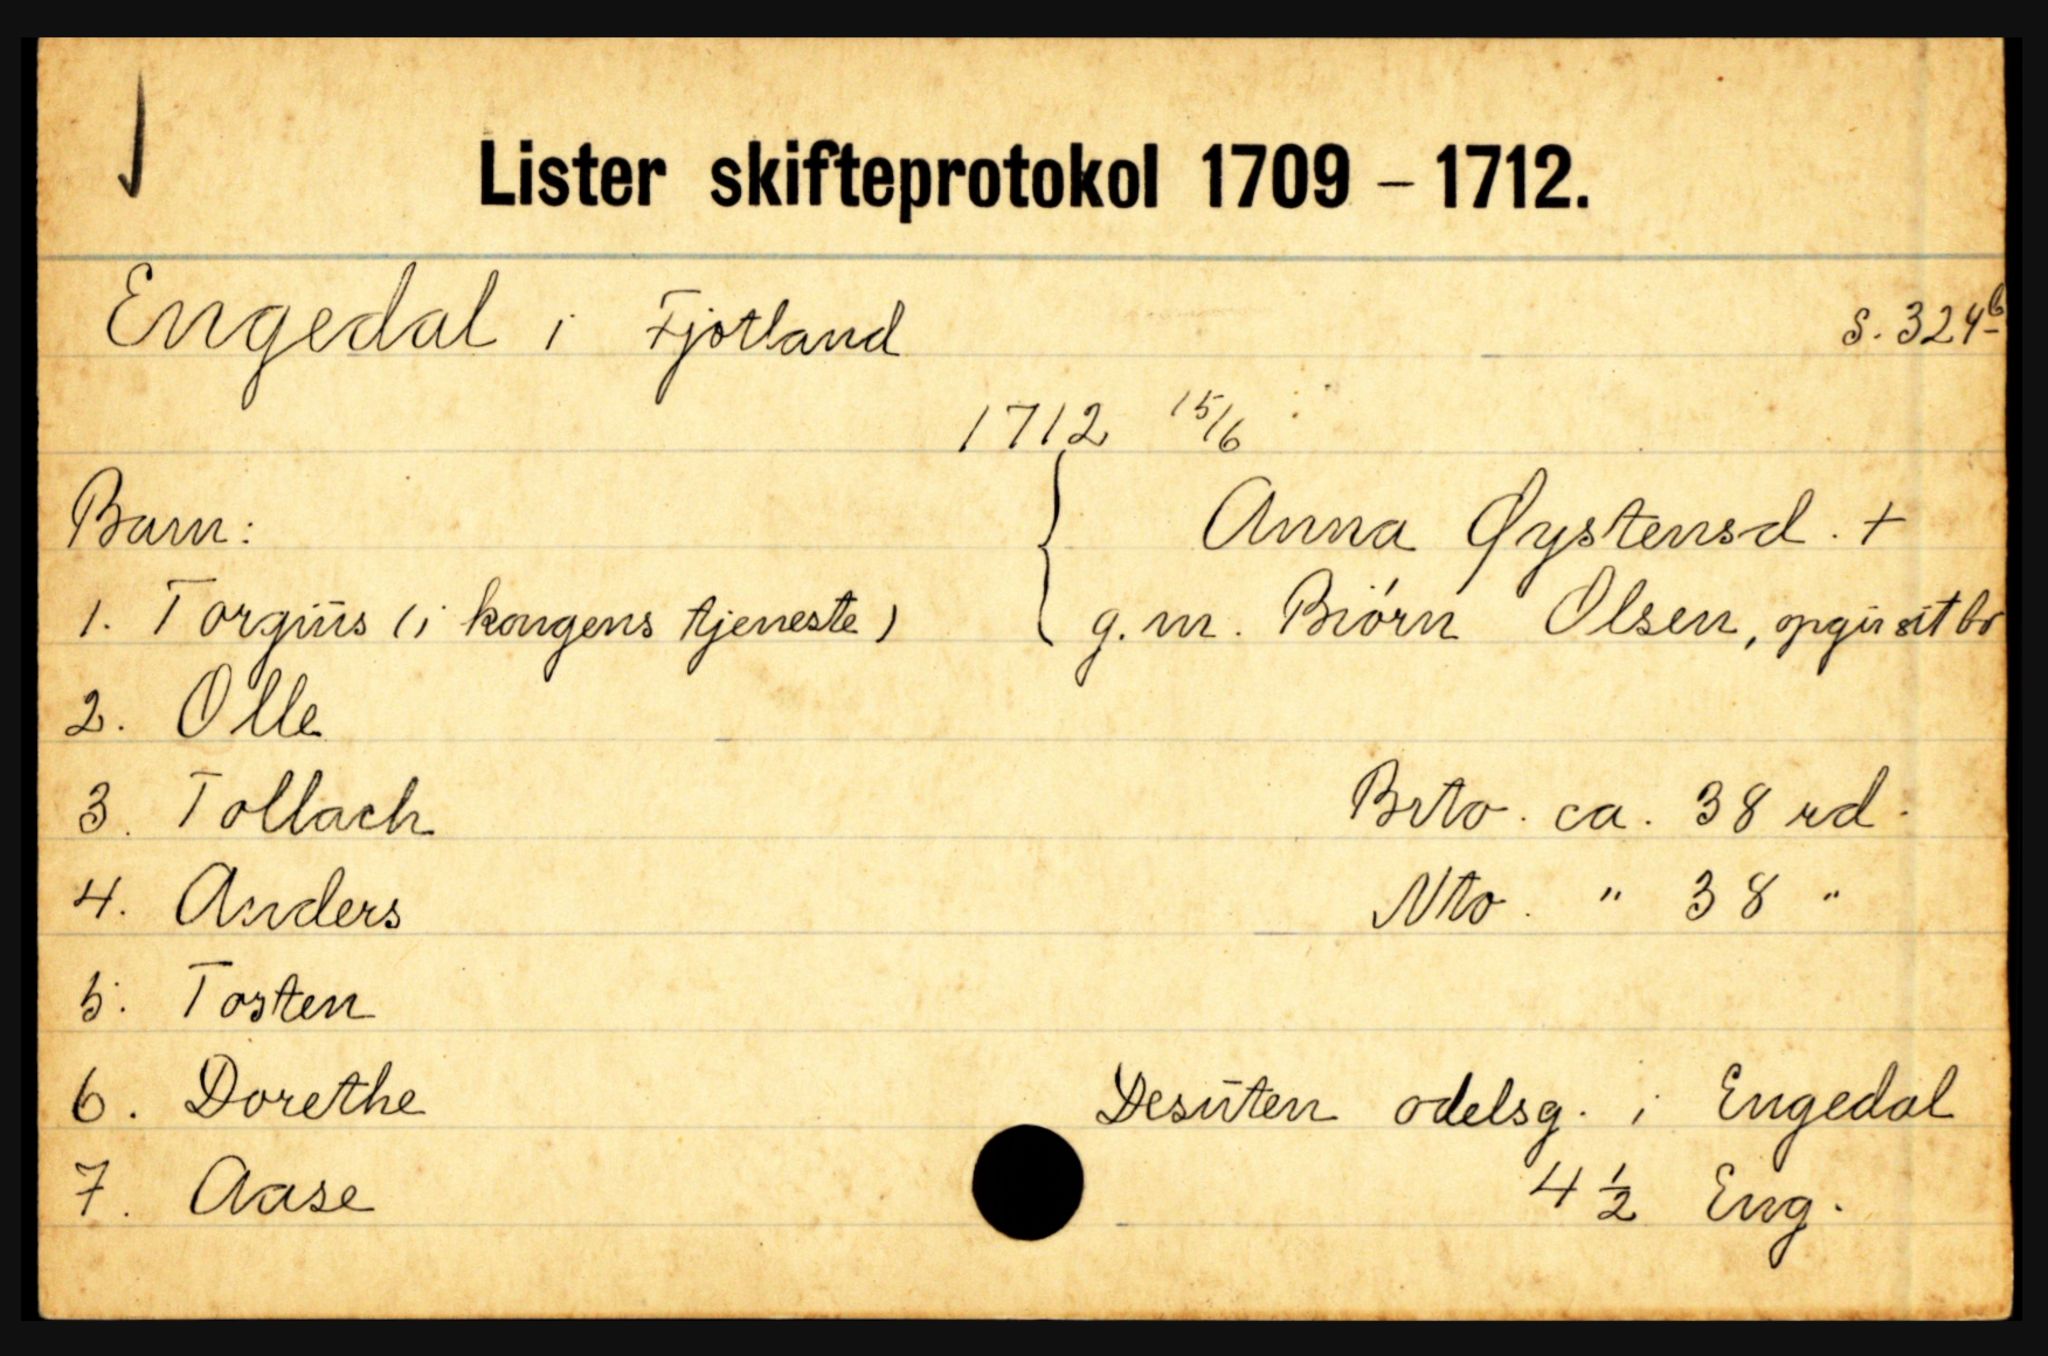 Lister skifteprotokol 1709 – 1712.
Engedal i Fjotland s. 324b
1712 15/6
Barn:
Anna Øystensd. +
1. Torgius (i kongens tjeneste)
g.m. Biørn Olsen, opgir sit bo
2. Olle
3. Tollach
Brto. ca. 38 rd.
4. Anders
Nto. " 38 "
5. Tosten
6. Dorethe
Desuten odelsg. i Engedal
7. Aase
4 1/2 Eng.